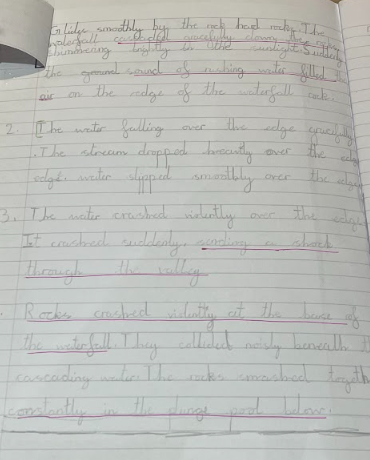 smoothly by the rock hard rocks. The
waterfall cascaded gracefully down the
shimmering brightly in the sunlight. Suddenly
the ground sound of rushing water filled the
air on the edge of the waterfall rock.
2. The water falling over the edge gracefully
. The stream dropped over the edge
edge. water slipped smoothly over the edge
3. The water crashed violently over the edge
It crashed suddenly, sending a shock
through the valley
Rocks crashed violently at the base of
the waterfall. They collided noisy beneath
cascading water. The rocks smashed togeth
constantly in the plunge pool below.